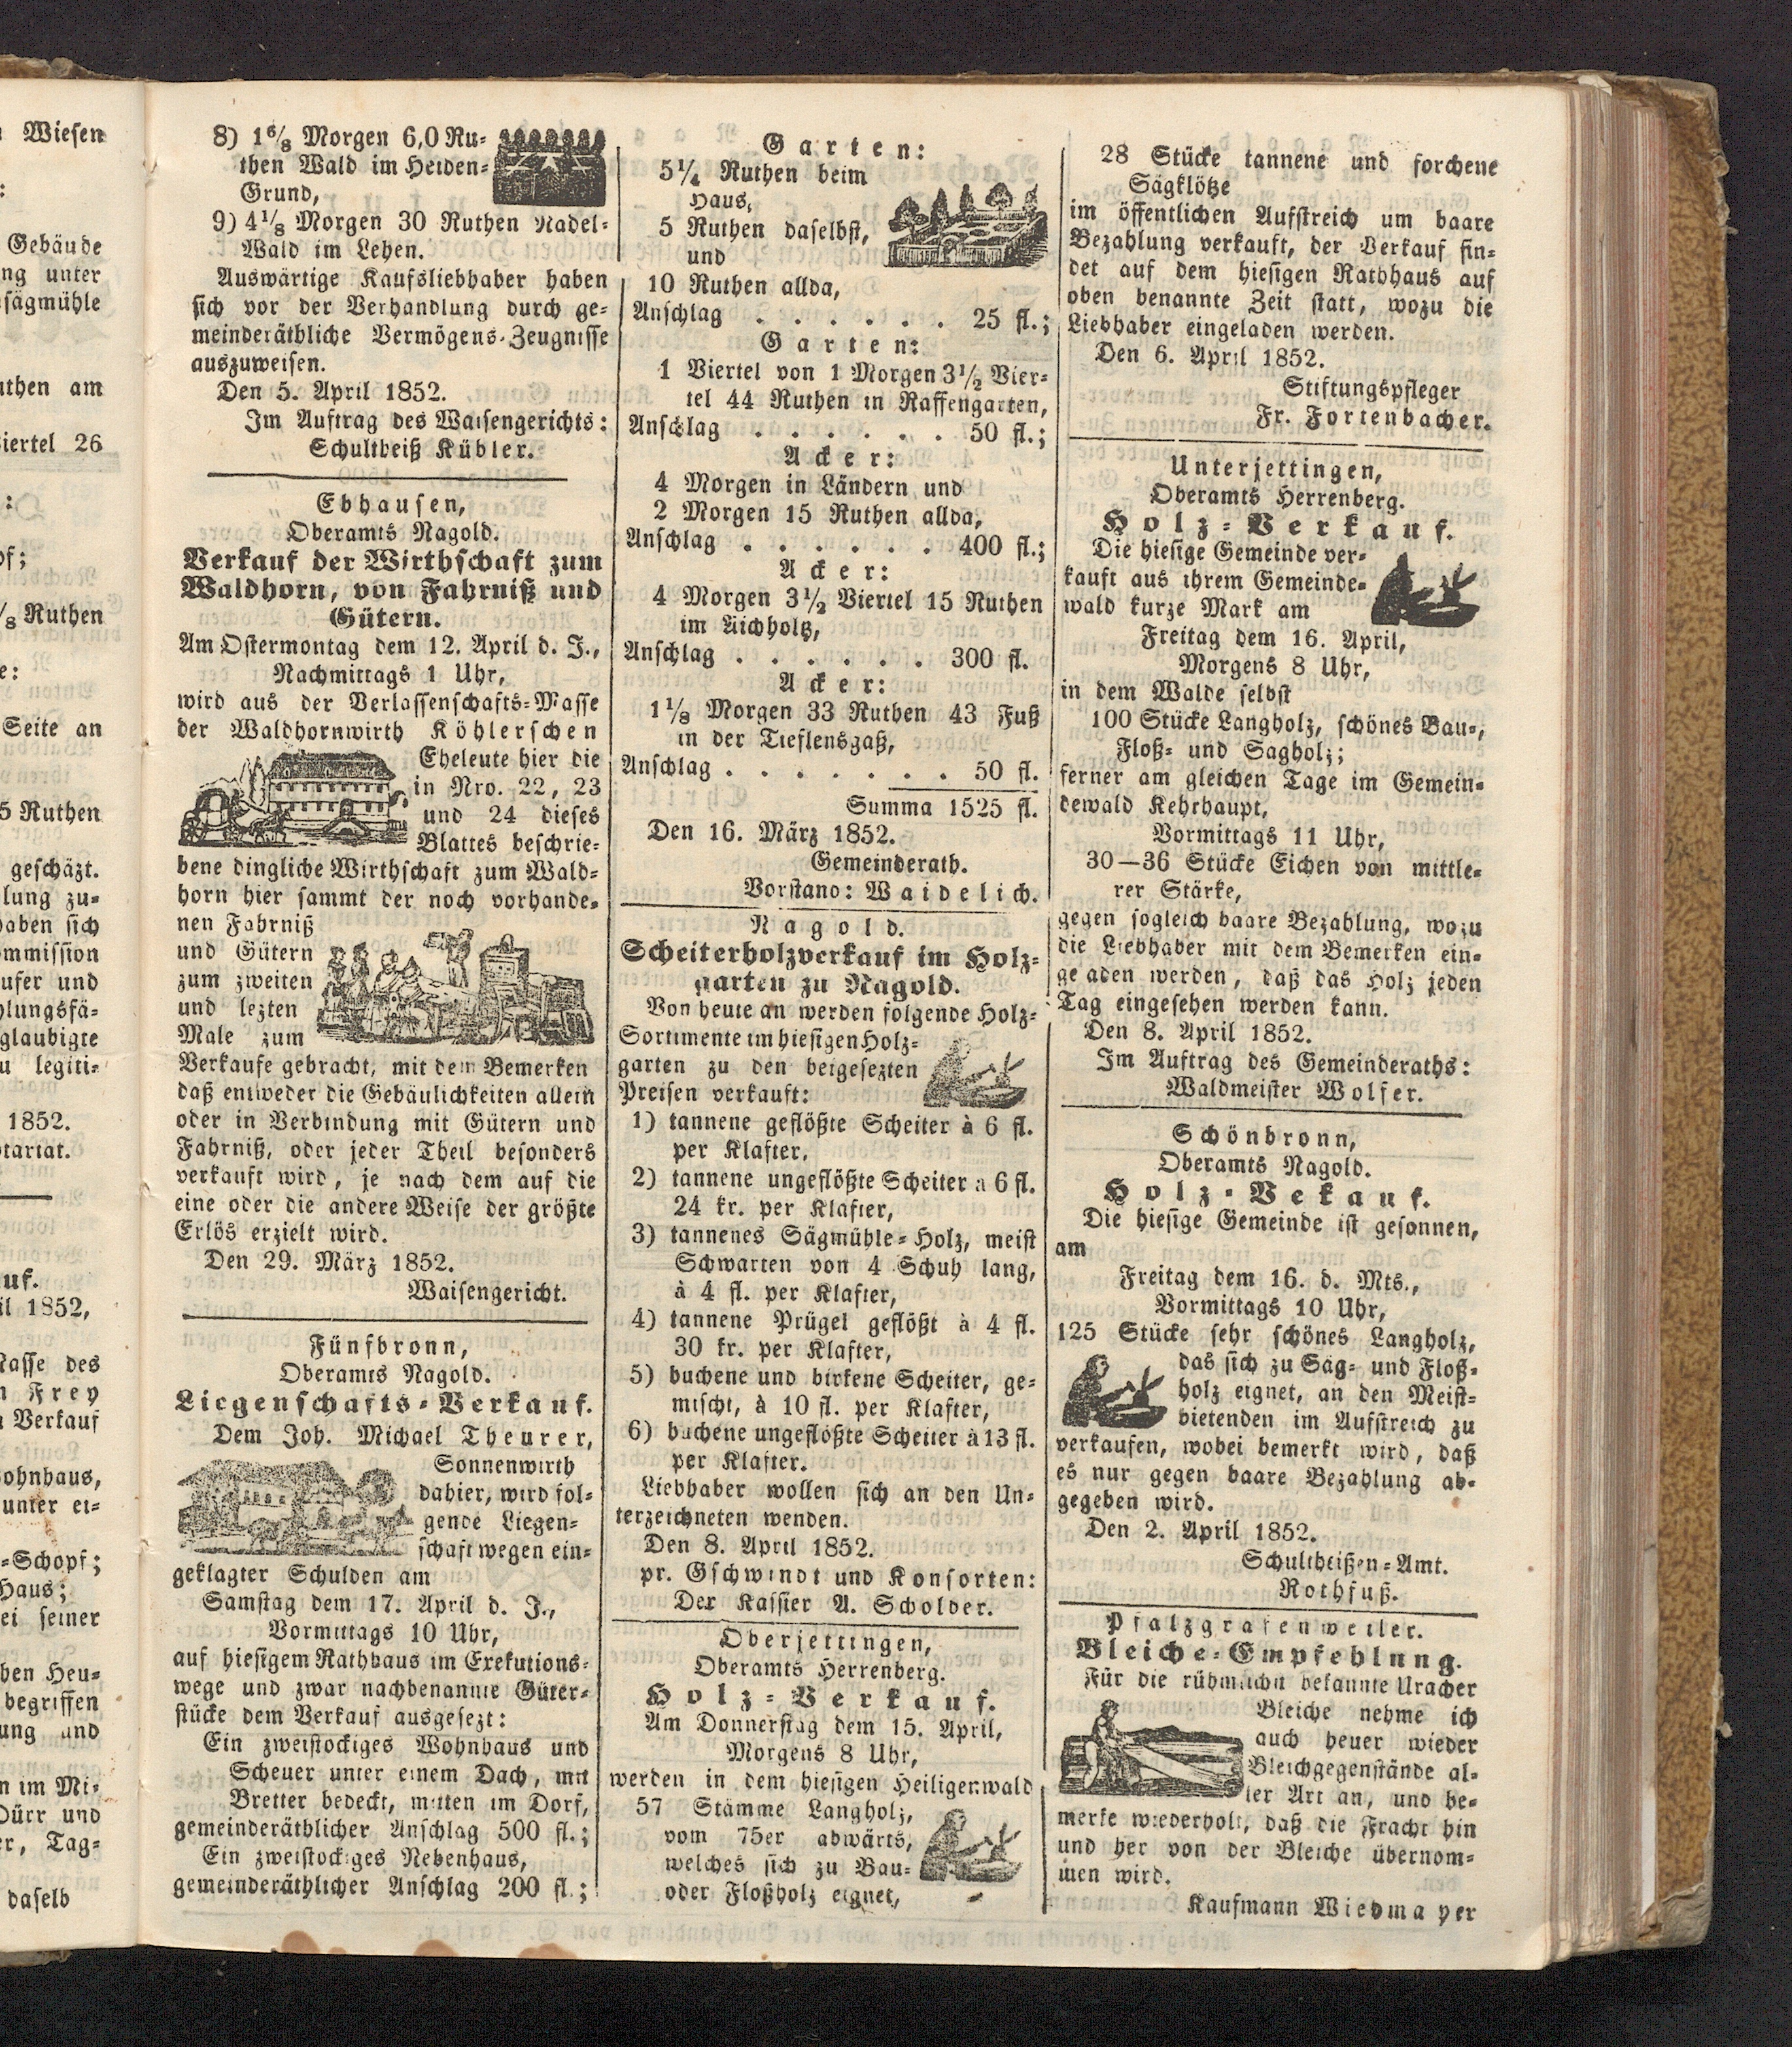 Wiesen
:
Gebäude
ng unter
sägmühle
uthen am
iertel 26
:
of;
/8 Ruthen
e:
Seite an
5 Ruthen
geschäzt.
lung zu-
haben sich
ommission
ufer und
hlungsfä-
glaubigte
u legiti-
1852.
otariat.
uf.
il 1852,
Masse des
n Frey
n Verkauf
ohnhaus,
unter ei-
=Schopf;
Haus;
ei seiner
ben Heu-
begriffen
ung und
n im Mi-
Dürr und
er, Tag-
daselb
8) 1 6/8 Morgen 6,0 Ru-
then Wald im Heiden-
Grund,
9) 4 1/8 Morgen 30 Ruthen Nadel-
Wald im Lehen.
Auswärtige Kaufsliebhaber haben
sich vor der Verhandlung durch ge-
meinderäthliche Vermögens-Zeugnisse
auszuweisen.
Den 5. April 1852.
Im Auftrag des Waisengerichts:
Schultheiß Kübler.
Ebhausen,
Oberamts Nagold.
Verkauf der Wirthschaft zum
Waldhorn, von Fahrniß und
Gütern.
Am Ostermontag dem 12. April d. J.,
Nachmittags 1 Uhr,
wird aus der Verlassenschafts-Masse
der Waldhornwirth Köhlerschen
Eheleute hier die
in Nro. 22, 23
und 24 dieses
Blattes beschrie-
bene dingliche Wirthschaft zum Wald-
horn hier sammt der noch vorhande-
nen Fahrniß
und Gütern
zum zweiten
und lezten
Male zum
Verkaufe gebracht, mit dem Bemerken
daß entweder die Gebäulichkeiten allein
oder in Verbindung mit Gütern und
Fahrniß, oder jeder Theil besonders
verkauft wird, je nach dem auf die
eine oder die andere Weise der größte
Erlös erzielt wird.
Den 29. März 1852.
Waisengericht.
Fünfbronn,
Oberamts Nagold.
Liegenschafts-Verkauf.
Dem Joh. Michael Theurer,
Sonnenwirth
dahier, wird fol-
gende Liegen-
schaft wegen ein-
geklagter Schulden am
Samstag dem 17. April d. J.,
Vormittags 10 Uhr,
auf hiesigem Rathhaus im Exekutions-
wege und zwar nachbenannte Güter-
stücke dem Verkauf ausgesezt:
Ein zweistockiges Wohnhaus und
Scheuer unter einem Dach, mit
Bretter bedeckt, mitten im Dorf,
gemeinderäthlicher Anschlag 500 fl.;
Ein zweistockiges Nebenhaus,
gemeinderäthlicher Anschlag 200 fl.;
Garten:
5 1/4 Ruthen beim
Haus,
5 Ruthen daselbst,
und
10 Ruthen allda,
Anschlag . . . . . . 25 fl.;
Garten:
1 Viertel von 1 Morgen 3 1/2 Vier-
tel 44 Ruthen in Raffengarten,
Anschlag . . . . . . 50 fl.;
Acker:
4 Morgen in Ländern und
2 Morgen 15 Ruthen allda,
Anschlag . . . . . . 400 fl.;
Acker:
4 Morgen 3 1/2 Viertel 15 Ruthen
im Aichholtz,
Anschlag . . . . . . 300 fl.
Acker:
1 1/8 Morgen 33 Ruthen 43 Fuß
in der Tieflensgaß,
Anschlag . . . . . . . 50 fl.
Summa 1525 fl.
Den 16. März 1852.
Gemeinderath.
Vorstand: Waidelich.
Nagold.
Scheiterholzverkauf im Holz-
garten zu Nagold.
Von heute an werden folgende Holz-
Sortimente im hiesigen Holz-
garten zu den beigesezten
Preisen verkauft:
1) tannene geflößte Scheiter à 6 fl.
per Klafter,
2) tannene ungeflößte Scheiter à 6 fl.
24 kr. per Klafter,
3) tannenes Sägmühle-Holz, meist
Schwarten von 4 Schuh lang,
à 4 fl. per Klafter,
4) tannene Prügel geflößt à 4 fl.
30 kr. per Klafter,
5) buchene und birkene Scheiter, ge-
mischt, à 10 fl. per Klafter,
6) buchene ungeflößte Scheiter à 13 fl.
per Klafter.
Liebhaber wollen sich an den Un-
terzeichneten wenden.
Den 8. April 1852.
pr. Gschwindt und Konsorten:
Der Kassier A. Scholder.
Oberjettingen,
Oberamts Herrenberg.
Holz-Verkauf.
Am Donnerstag dem 15. April,
Morgens 8 Uhr,
werden in dem hiesigen Heiligenwald
57 Stämme Langholz,
vom 75er abwärts,
welches sich zu Bau-
oder Floßholz eignet,
28 Stücke tannene und forchene
Sägklötze
im öffentlichen Aufstreich um baare
Bezahlung verkauft, der Verkauf fin-
det auf dem hiesigen Rathhaus auf
oben benannte Zeit statt, wozu die
Liebhaber eingeladen werden.
Den 6. April 1852.
Stiftungspfleger
Fr. Fortenbacher.
Unterjettingen,
Oberamts Herrenberg.
Holz-Verkauf.
Die hiesige Gemeinde ver-
kauft aus ihrem Gemeinde-
wald kurze Mark am
Freitag dem 16. April,
Morgens 8 Uhr,
in dem Walde selbst
100 Stücke Langholz, schönes Bau-,
Floß- und Sagholz;
ferner am gleichen Tage im Gemein-
dewald Kehrhaupt,
Vormittags 11 Uhr,
30—36 Stücke Eichen von mittle-
rer Stärke,
gegen sogleich baare Bezahlung, wozu
die Liebhaber mit dem Bemerken ein-
ge aden werden, daß das Holz jeden
Tag eingesehen werden kann.
Den 8. April 1852.
Im Auftrag des Gemeinderaths:
Waldmeister Wolfer.
Schönbronn,
Oberamts Nagold.
Holz-Vekauf.
Die hiesige Gemeinde ist gesonnen,
am
Freitag dem 16. d. Mts.,
Vormittags 10 Uhr,
125 Stücke sehr schönes Langholz,
das sich zu Säg- und Floß-
holz eignet, an den Meist-
bietenden im Aufstreich zu
verkaufen, wobei bemerkt wird, daß
es nur gegen baare Bezahlung ab-
gegeben wird.
Den 2. April 1852.
Schultheißen-Amt.
Rothfuß.
Pfalzgrafenweiler.
Bleiche-Empfehlung.
Für die rühmlichst bekannte Uracher
Bleiche nehme ich
auch heuer wieder
Bleichgegenstände al-
ler Art an, und be-
merke wiederholt, daß die Fracht hin
und her von der Bleiche übernom-
men wird.
Kaufmann Wiedmayer